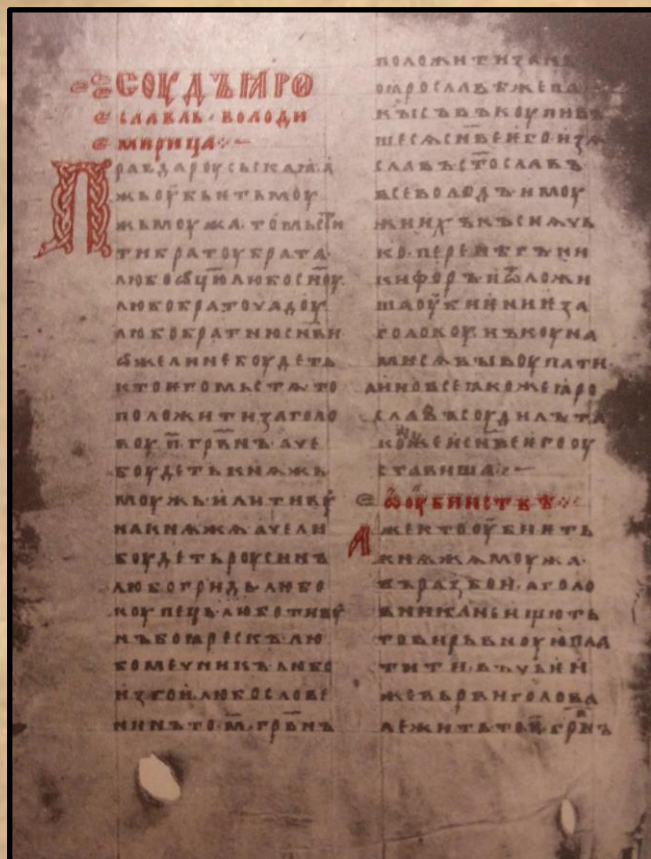 СОУДЪ ꙖРО
СЛАВЛЬ · ВОЛОДИ
МИРИЦА
ПРАВДА РОУСЬСКАꙖ · А
ЖЬ ОУБЬИТЬ МОУ
ЖЬ МОУЖА · ТО МЬСТИ
ТИ БРАТОУ БРАТА ·
ЛЮБО ѾЦЮ ЛЮБО СН҃ОУ
ЛЮБО БРАТОУЧАДОУ ·
ЛЮБО БРАТНЮ СН҃ВИ
ѠЖЕ ЛИ НЕ БОУДЕТЬ
КТО ЕГО МЬСТѦ · ТО
ПОЛОЖИТИ ЗА ГОЛО
ВОУ П҃ ГРВ҃НЪ · АЧЕ
БОУДЕТЬ КНѦЖЬ
МОУЖЬ · ИЛИ ТИВОУ
НА КНѦЖѦ · АЧЕ ЛИ
БОУДЕТЬ РОУСИНЪ
ЛЮБО ГРИДЬ · ЛЮБО
КОУПЕЦЬ · ЛЮБО ТИВОУ
НЪ БОꙖРЕСКЪ · ЛЮ
БО МЕЧНИКЪ · ЛЮБО
ИЗГОИ · ЛЮБО СЛОВЕ
НИНЪ ТО · М҃ · ГРВ҃НЪ
ПОЛОЖИТИ ЗА НЬ
ПО ꙖРОСЛАВѢ ЖЕ ПА
КЫ СЪВЪКОУПИВЪ
ШЕСѦ СН҃ВЕ ЕГО ИЗѦ
СЛАВЪ СТ҃ОСЛАВЪ
ВСЕВОЛОДЪ · И МОУ
ЖИ ИХЪ КЪСНѦЧЬ
КО · ПЕРЕНѢГЪ НИ
КИФОРЪ · И ѾЛОЖИ
ША ОУБИИНИЕ ЗА
ГОЛОВОУ НЪ КОУНА
МИ СѦ ВЫКОУПАТИ ·
А ИНО ВСЕ ꙖКОЖЕ ꙖРО
СЛАВЪ СОУДИЛЪ ТА
КОЖЕ И СН҃ВЕ ЕГО ОУ
СТАВИША ·
Ѡ ОУБИИСТВѢ
АЖЕ КТО ОУБИИТЬ
КНѦЖѦ МОУЖА ·
ВЪ РАЗБОИ · А ГОЛО
ВНИКА НЕ ИЩЮТЬ
ТО ВИРЬВНОУЮ ПЛА
ТИТИ · ВЪ ЧЬИИ
ЖЕ ВЬРВИ ГОЛОВА
ЛЕЖИТЬ ТО П҃ ГРВ҃НЪ